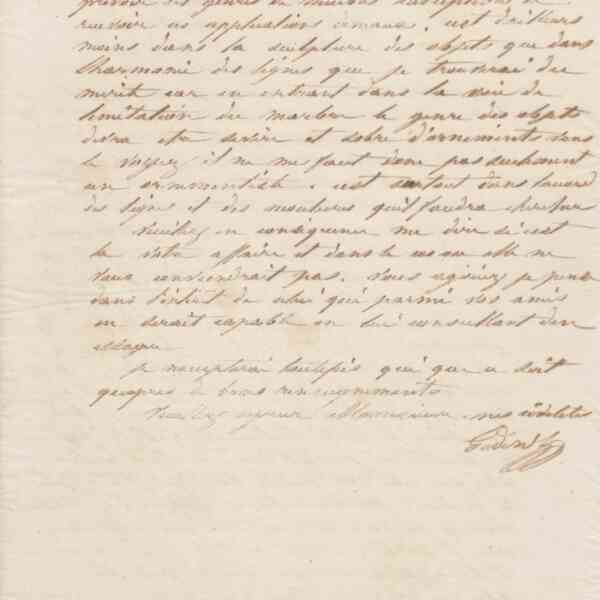 recevoir ces applications émaux, c'est d'ailleurs
moins dans la sculpture des objets que dans
l'harmonie des lignes que je trouverai du
mérite car en entrant dans la voie de
l'imitation du marbre le genre des objets
devra être sévère et sobre d'ornements vous
le voyez il ne me faut donc pas seulement
un ornementiste, c'est surtout dans l'accord
des lignes et des moulures qu'il faudra chercher
Veuillez en conséquence me dire si c'est
là votre affaire et dans le cas ou elle ne
vous conviendrait pas. Vous agréiez je pense
dans l'intérêt de celui qui parmi vos amis
en serait capable en lui consultant d'en
Je n'accepterai toutefois qui que ce soit
qu'après de bons renseignements
Veuillez agréer Monsieur, mes civilités